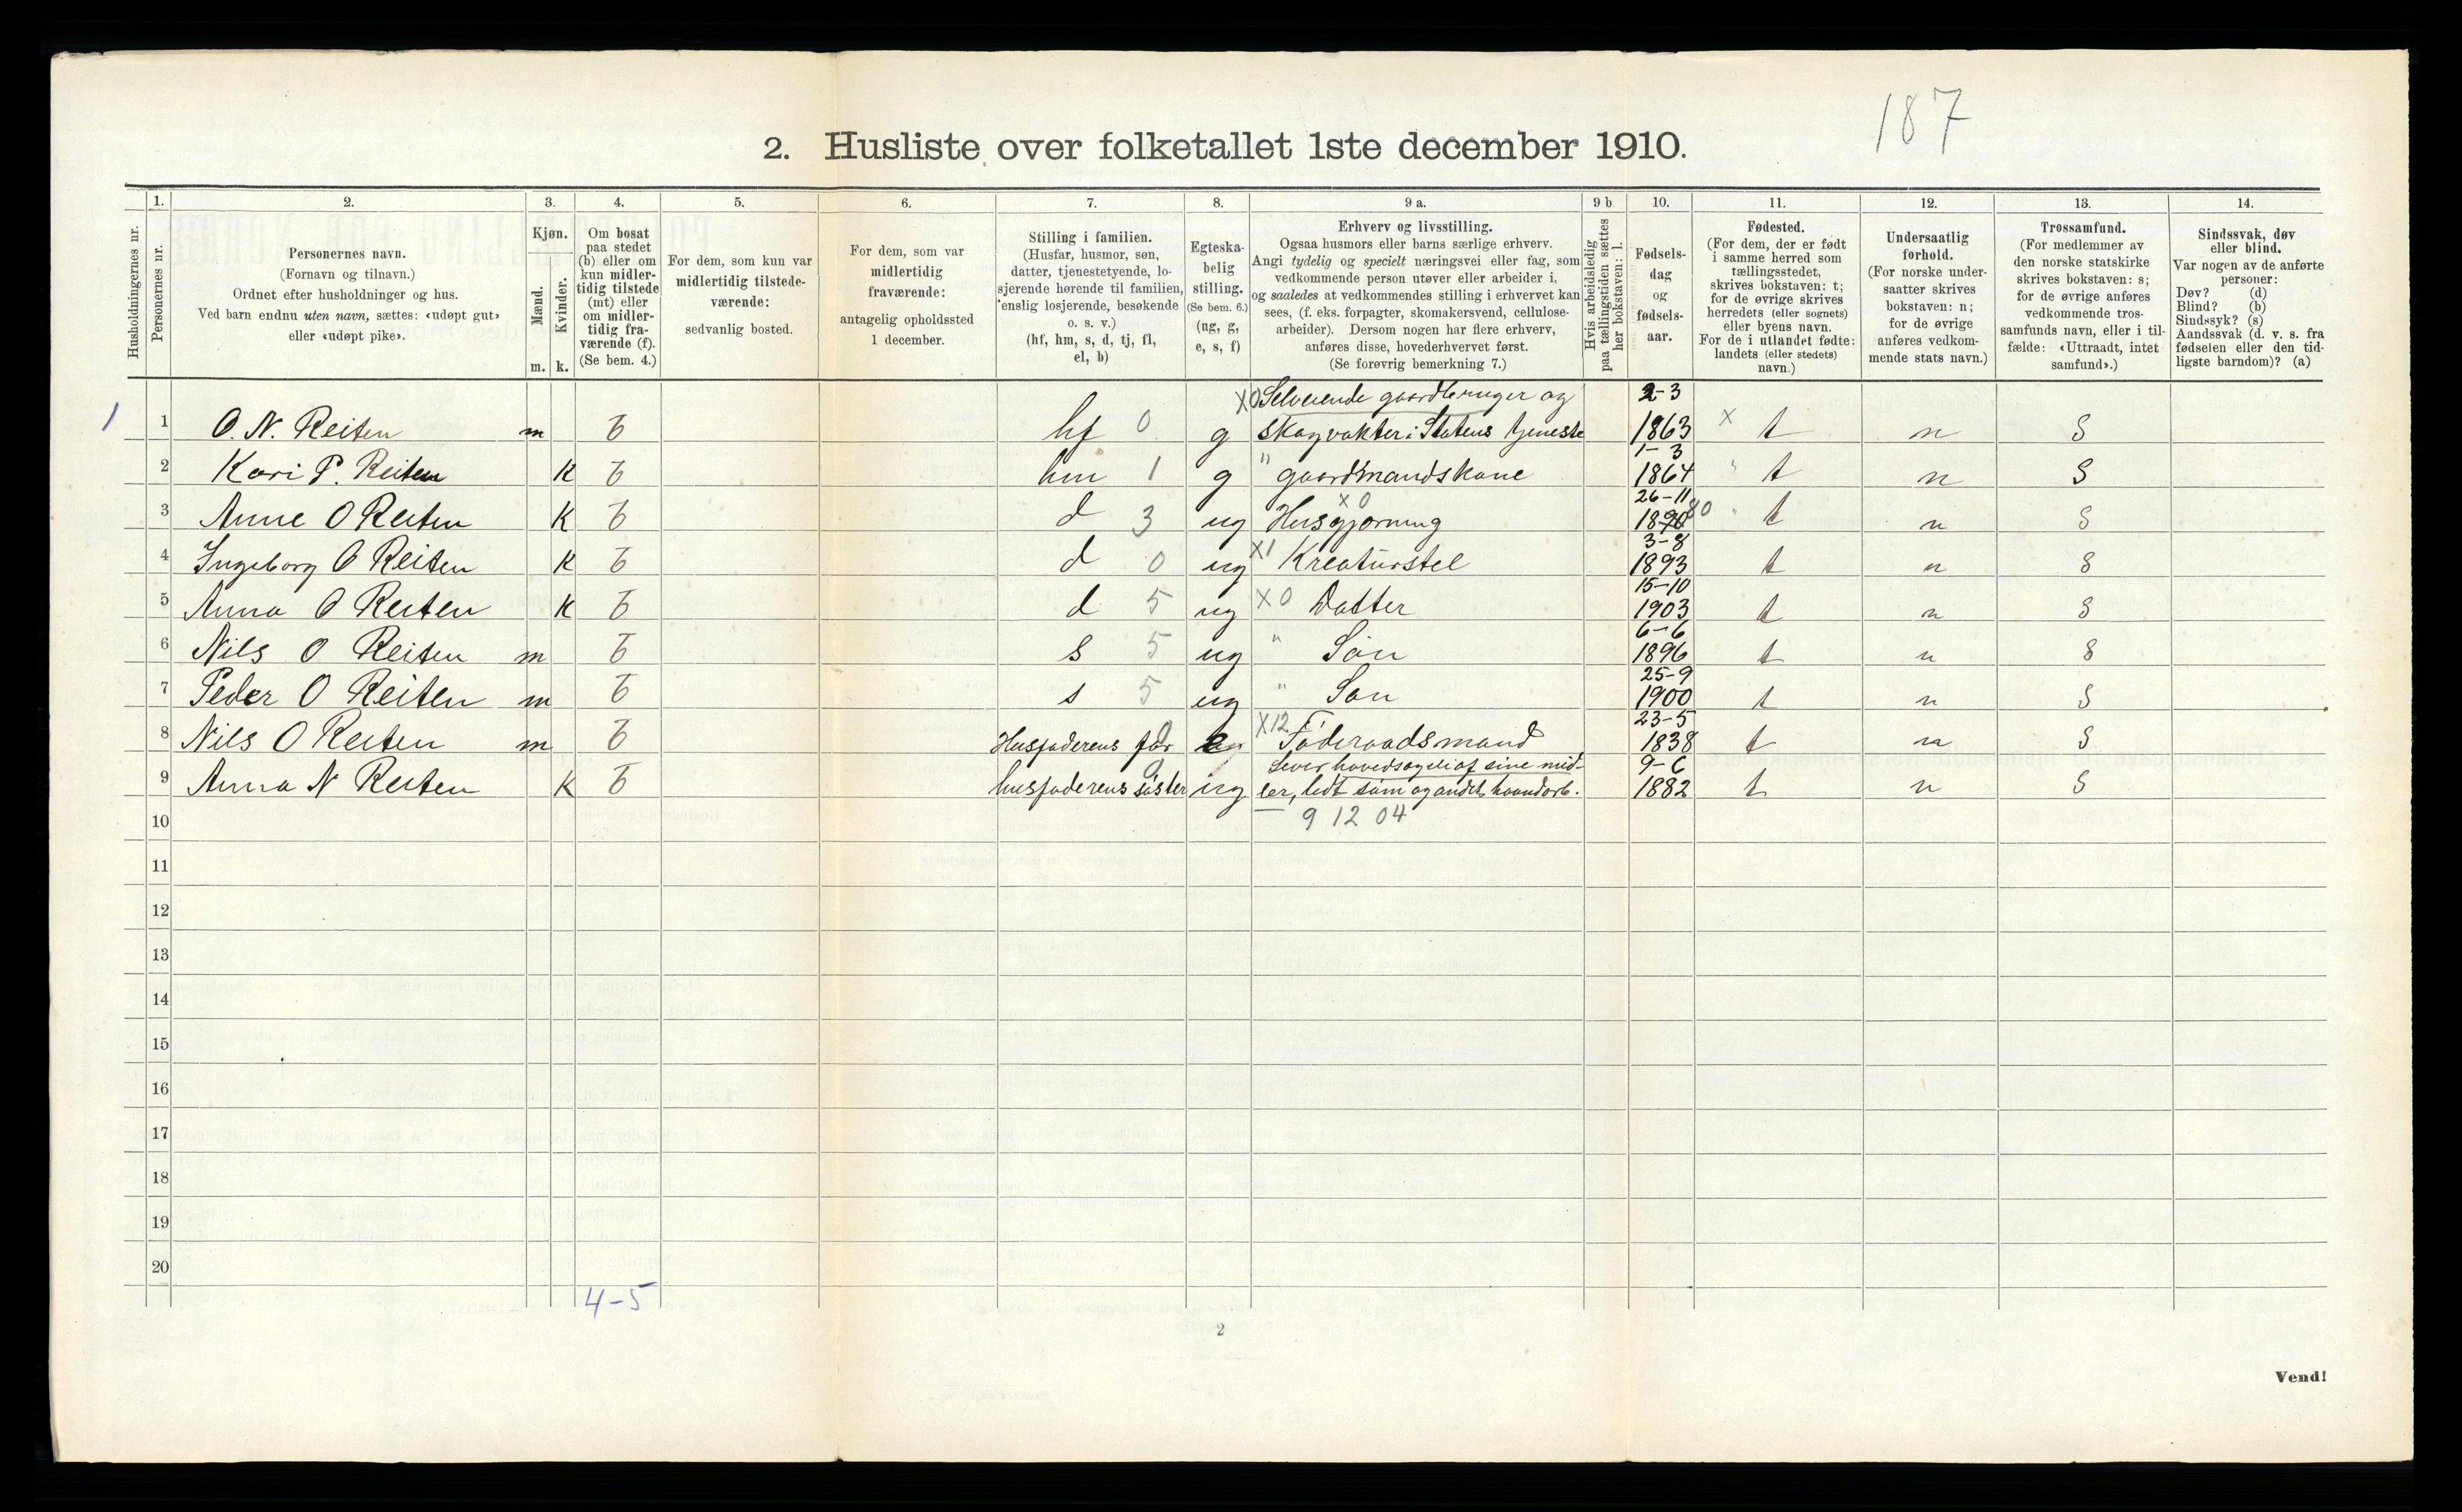 187
2. Husliste over folketallet 1ste december 1910.
Husholdningernes nr.
1. Personernes nr.
2. Personernes navn.
(Fornavn og tilnavn.)
Ordnet efter husholdninger og hus.
Ved barn endnu uten navn, sættes: «udøpt gut»
eller «udøpt pike».
3. Kjøn.
Mænd. m.
Kvinder. k.
4. Om bosat
paa stedet
(b) eller om
kun midler-
tidig tilstede
(mt) eller
om midler-
tidig fra-
værende (f).
(Se bem. 4.)
5. For dem, som kun var
midlertidig tilstede-
værende:
sedvanlig bosted.
6. For dem, som var
midlertidig
fraværende:
antagelig opholdssted
1 december.
7. Stilling i familien.
(Husfar, husmor, søn,
datter, tjenestetyende, lo-
sjerende hørende til familien,
enslig losjerende, besøkende
o. s. v.)
(hf, hm, s, d, tj, fl,
el, b)
8. Egteska-
belig
stilling.
(Se bem. 6.)
(ug, g,
e, s, f)
9 a. Erhverv og livsstilling.
Ogsaa husmors eller barns særlige erhverv.
Angi tydelig og specielt næringsvei eller fag, som
vedkommende person utøver eller arbeider i,
og saaledes at vedkommendes stilling i erhvervet kan
sees, (f. eks. forpagter, skomakersvend, cellulose-
arbeider). Dersom nogen har flere erhverv,
anføres disse, hovederhvervet først.
(Se forøvrig bemerkning 7.)
9 b Hvis arbeidsledig
paa tællingstiden sættes
her bokstaven: l.
10. Fødsels-
dag
og
fødsels-
aar.
11. Fødested.
(For dem, der er født
i samme herred som
tællingsstedet,
skrives bokstaven: t;
for de øvrige skrives
herredets (eller sognets)
eller byens navn.
For de i utlandet fødte:
landets (eller stedets)
navn.)
12. Undersaatlig
forhold.
(For norske under-
saatter skrives
bokstaven: n;
for de øvrige
anføres vedkom-
mende stats navn.)
13. Trossamfund.
(For medlemmer av
den norske statskirke
skrives bokstaven: s;
for de øvrige anføres
vedkommende tros-
samfunds navn, eller i til-
fælde: «Uttraadt, intet
samfund».)
14. Sindssvak, døv
eller blind.
Var nogen av de anførte
personer:
Døv? (d)
Blind? (b)
Sindssyk? (s)
Aandssvak (d. v. s. fra
fødselen eller den tid-
ligste barndom)? (a)
X0 Selveiende gaardbruger og 2-3
1 1 O. N. Reiten m b hf 0 g skogvokter i Statens tjeneste 1863 X t n S
1-3
2 Kari P. Reiten K b hm 1 g " gaardmandskone 1864 " t n S
X0 26-11
3 Anne O Reiten K b d 3 ug Husgjørning 1890 80 " t n S
3-8
4 Ingeborg O Reiten K b d 0 ug X1 Kreaturstel 1893 t n S
15-10
5 Anna O Reiten K b d 5 ug X0 Datter 1903 t n S
6-6
6 Nils O Reiten m b s 5 ug " Søn 1896 t n S
25-9
7 Peder O Reiten m b s 5 ug " Søn 1900 t n S
23-5
8 Nils O Reiten m b Husfaderens far 0 X12 Føderaadsmand 1838 t n S
Lever hovedsageli af sine mid- 9-6
9 Anna N Reiten K b husfaderens søster 0 ug ler, lidt søm og andet haandarb. 1882 t n S
10 9 12 04
11
12
13
14
15
16
17
18
19
20
4-5
2
Vend!